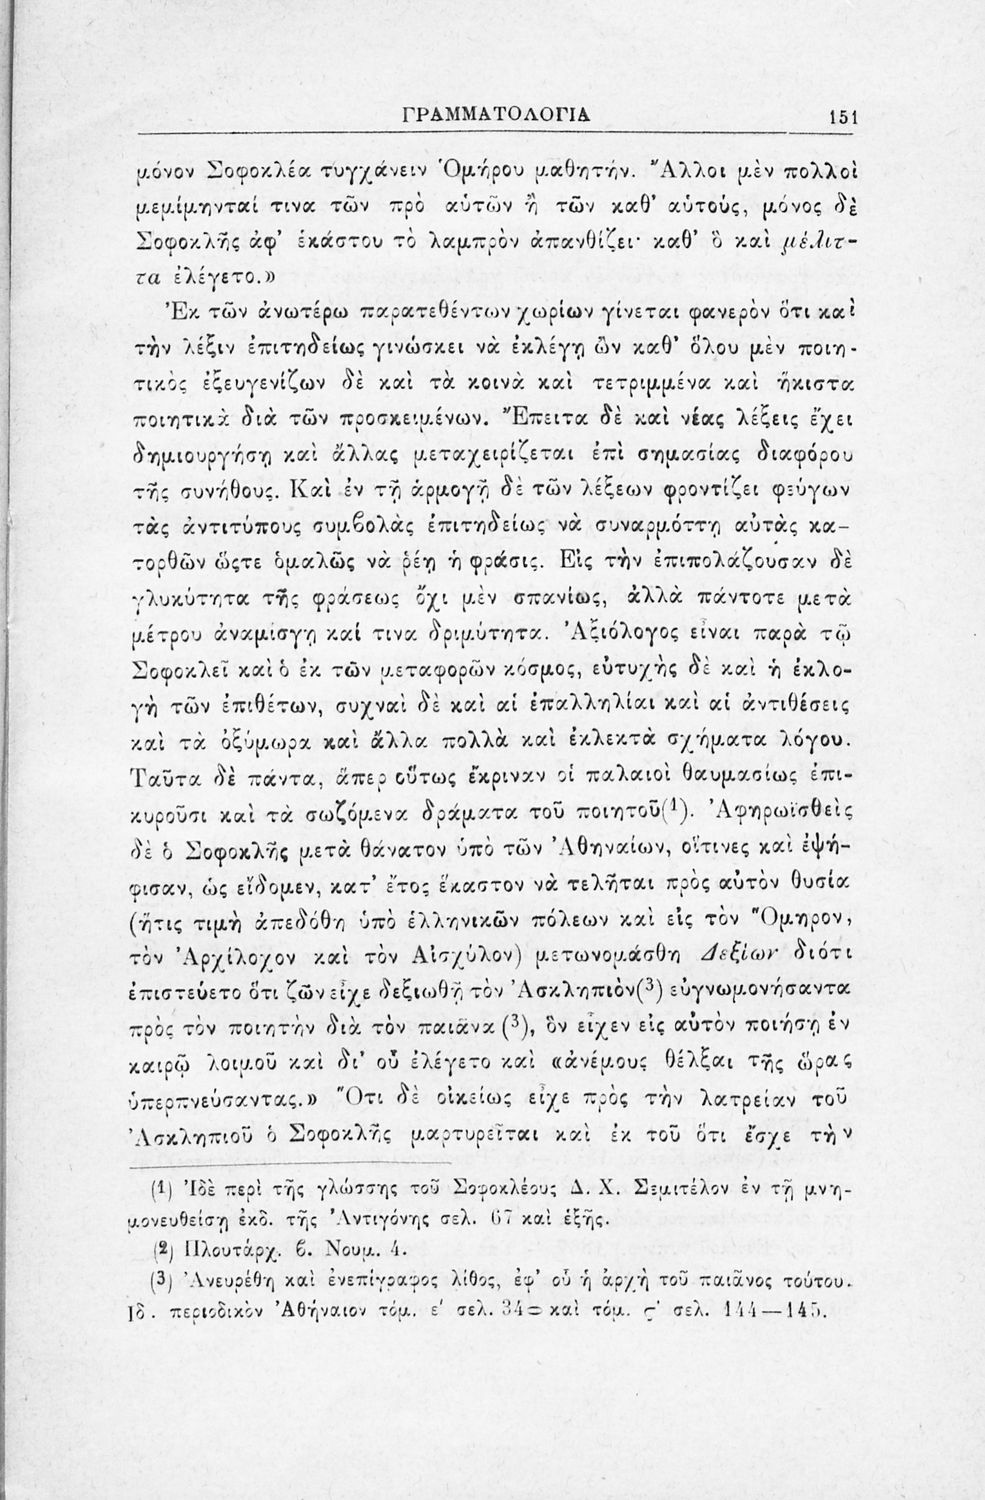 ΓΡΑΜΜΑΤΟΛΟΓΙΑ 151
μόνον Σοφοκλέα τυγχάνειν Ὁμήρου μαθητήν. Ἄλλοι μὲν πολλοὶ
μεμίμηνταί τινα τῶν πρὸ αὐτῶν ἢ τῶν καθ’ αὑτούς, μόνος δὲ
Σοφοκλῆς ἀφ’ ἑκάστου τὸ λαμπρὸν ἀπανθίζει· καθ’ ὃ καὶ μέλιτ-
τα ἐλέγετο.»
Ἐκ τῶν ἀνωτέρω παρατεθέντων χωρίων γίνεται φανερὸν ὅτι καὶ
τὴν λέξιν ἐπιτηδείως γινώσκει νὰ ἐκλέγῃ ὢν καθ’ ὅλου μὲν ποιη-
τικὸς ἐξευγενίζων δὲ καὶ τὰ κοινὰ καὶ τετριμμένα καὶ ἥκιστα
ποιητικὰ διὰ τῶν προσκειμένων. Ἔπειτα δὲ καὶ νέας λέξεις ἔχει
δημιουργήσῃ καὶ ἄλλας μεταχειρίζεται ἐπὶ σημασίας διαφόρου
τῆς συνήθους. Καὶ ἐν τῇ ἁρμογῇ δὲ τῶν λέξεων φροντίζει φεύγων
τὰς ἀντιτύπους συμβολὰς ἐπιτηδείως νὰ συναρμόττῃ αὐτὰς κα-
τορθῶν ὥςτε ὁμαλῶς νὰ ῥέῃ ἡ φράσις. Εἰς τὴν ἐπιπολάζουσαν δὲ
γλυκύτητα τῆς φράσεως ὄχι μὲν σπανίως, ἀλλὰ πάντοτε μετὰ
μέτρου ἀναμίσγῃ καί τινα δριμύτητα. Ἀξιόλογος εἶναι παρὰ τῷ
Σοφοκλεῖ καὶ ὁ ἐκ τῶν μεταφορῶν κόσμος, εὐτυχὴς δὲ καὶ ἡ ἐκλο-
γὴ τῶν ἐπιθέτων, συχναὶ δὲ καὶ αἱ ἐπαλληλίαι καὶ αἱ ἀντιθέσεις
καὶ τὰ ὀξύμωρα καὶ ἄλλα πολλὰ καὶ ἐκλεκτὰ σχήματα λόγου.
Ταῦτα δὲ πάντα, ἅπερ οὕτως ἔκριναν οἱ παλαιοὶ θαυμασίως ἐπι-
κυροῦσι καὶ τὰ σωζόμενα δράματα τοῦ ποιητοῦ(1). Ἀφηρωϊσθεὶς
δὲ ὁ Σοφοκλῆς μετὰ θάνατον ὑπὸ τῶν Ἀθηναίων, οἵτινες καὶ ἐψή-
φισαν, ὡς εἴδομεν, κατ’ ἔτος ἕκαστον νὰ τελῆται πρὸς αὐτὸν θυσία
(ἥτις τιμὴ ἀπεδόθη ὑπὸ ἑλληνικῶν πόλεων καὶ εἰς τὸν Ὅμηρον,
τὸν Ἀρχίλοχον καὶ τὸν Αἰσχύλον) μετωνομάσθη Δεξίων διότι
ἐπιστεύετο ὅτι ζῶν εἶχε δεξιωθῇ τὸν Ἀσκληπιὸν(3) εὐγνωμονήσαντα
πρὸς τὸν ποιητὴν διὰ τὸν παιᾶνα (3), ὃν εἶχεν εἰς αὐτὸν ποιήσῃ ἐν
καιρῷ λοιμοῦ καὶ δι’ οὗ ἐλέγετο καὶ «ἀνέμους θέλξαι τῆς ὥρας
ὑπερπνεύσαντας.» Ὅτι δὲ οἰκείως εἶχε πρὸς τὴν λατρείαν τοῦ
Ἀσκληπιοῦ ὁ Σοφοκλῆς μαρτυρεῖται καὶ ἐκ τοῦ ὅτι ἔσχε τὴν
(1) Ἰδὲ περὶ τῆς γλώσσης τοῦ Σοφοκλέους Δ. Χ. Σεμιτέλον ἐν τῇ μνη-
μονευθείσῃ ἐκδ. τῆς Ἀντιγόνης σελ. 67 καὶ ἑξῆς.
(2) Πλουτάρχ. β. Νουμ. 4.
(3) Ἀνευρέθη καὶ ἐνεπίγραφος λίθος, ἐφ’ οὗ ἡ ἀρχὴ τοῦ παιᾶνος τούτου.
Ἰδ. περιοδικὸν Ἀθήναιον τόμ. ε′ σελ. καὶ τόμ. ς′ σελ. 144—145.